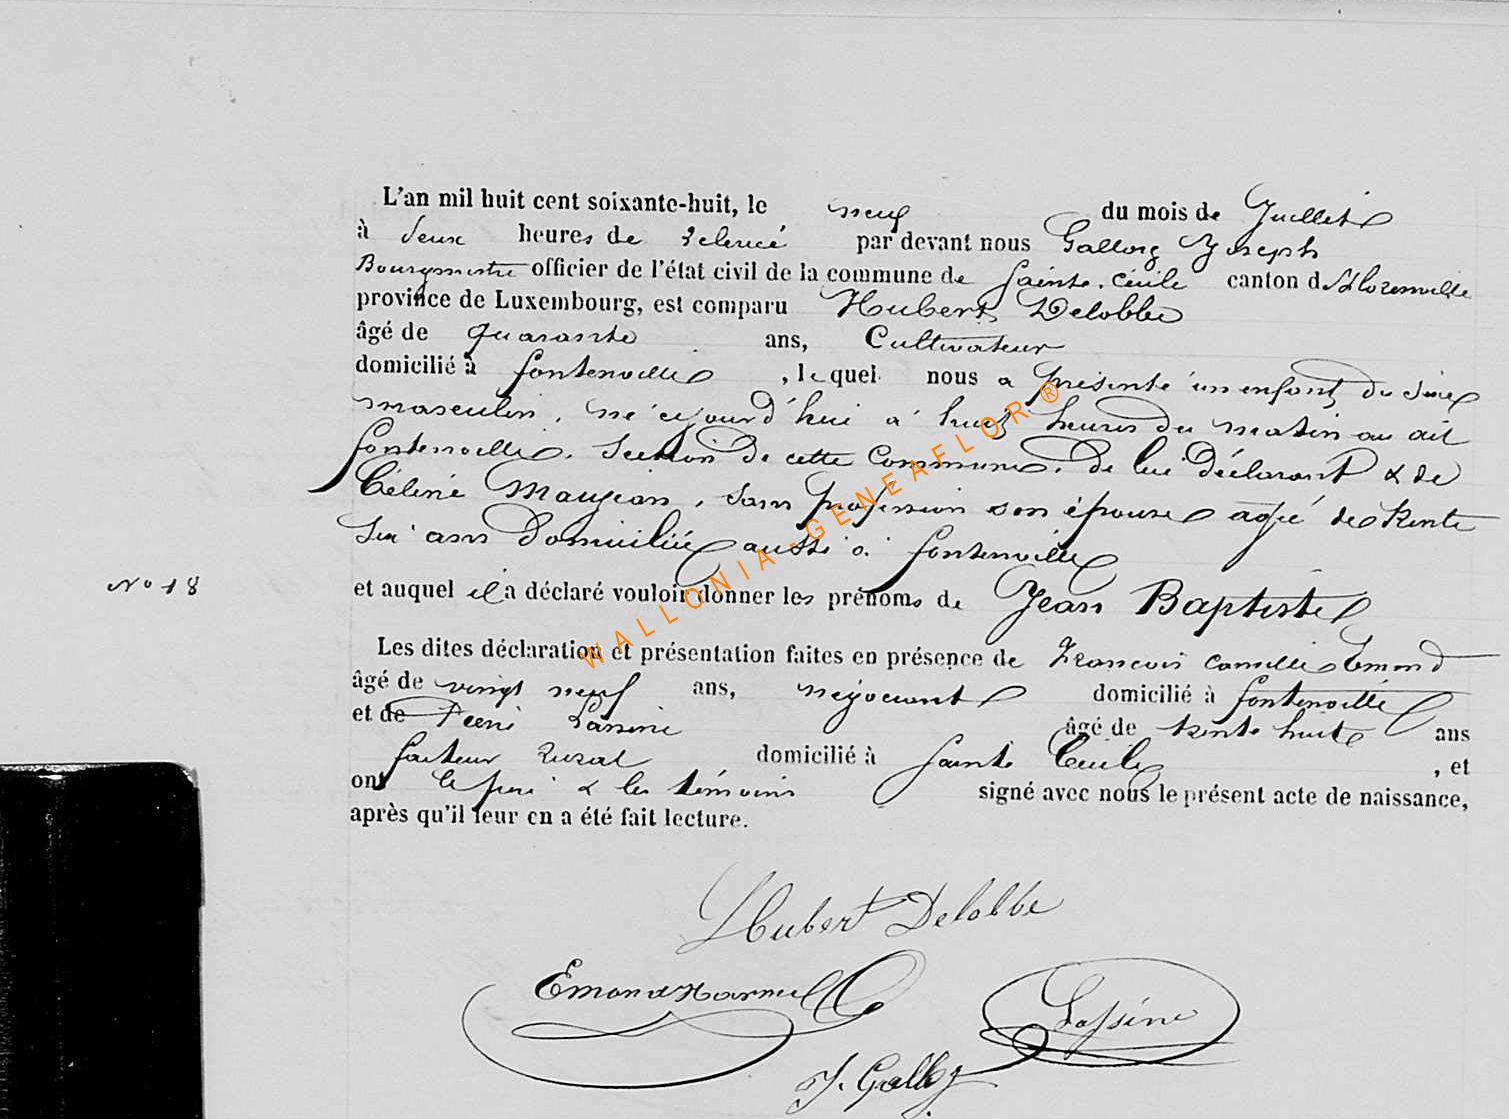 L'an mil huit cent soixante-huit, le neuf du mois de Juillet
à deux heures de relevée par devant nous Joseph
Bourgmestre officier de l'état civil de la commune de Sainte-Cécile canton de Florenville
province de Luxembourg, est comparu Hubert Delobbe
âgé de quarante ans, Cultivateur
domicilié à fontenoille, lequel nous a présenté un enfant du sexe
masculin, né cejourd'hui à huit heures du matin au dit
fontenoille, section de cette commune, de lui déclarant & de
Céline Maugean, sans profession son épouse agée de trente
six ans domiciliée aussi à fontenoille
No 18
et auquel il a déclaré vouloir donner les prénoms de Jean Baptiste
Les dites déclaration et présentation faites en présence de François Camille Emond
âgé de vingt neuf ans, négociant domicilié à fontenoille
et de Lassine âgé de trente huit ans
facteur rural domicilié à Sainte Cécile, et
ont le père & les témoins signé avec nous le présent acte de naissance,
après qu'il leur en a été fait lecture.
Hubert Delobbe
Emond
Lassine
J.
WALLONIA-GENEAFLOR®